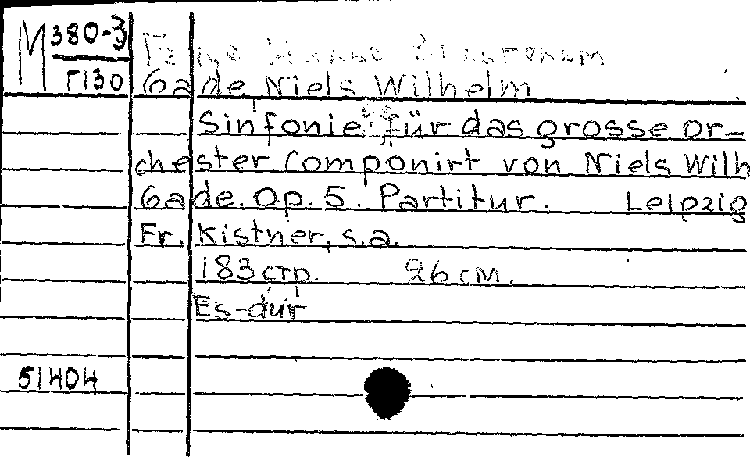 М 380-3
Г130
Гаде Нильс Вильгельм
Gade, Niels Wilhelm
Sinfonie für das grosse Or-
chester componirt von Niels Wilh
Gade. Op. 5. Partitur. Leipzig
Fr. Kistner, s.a.
183 стр. 26 см.
Es-dur
51404